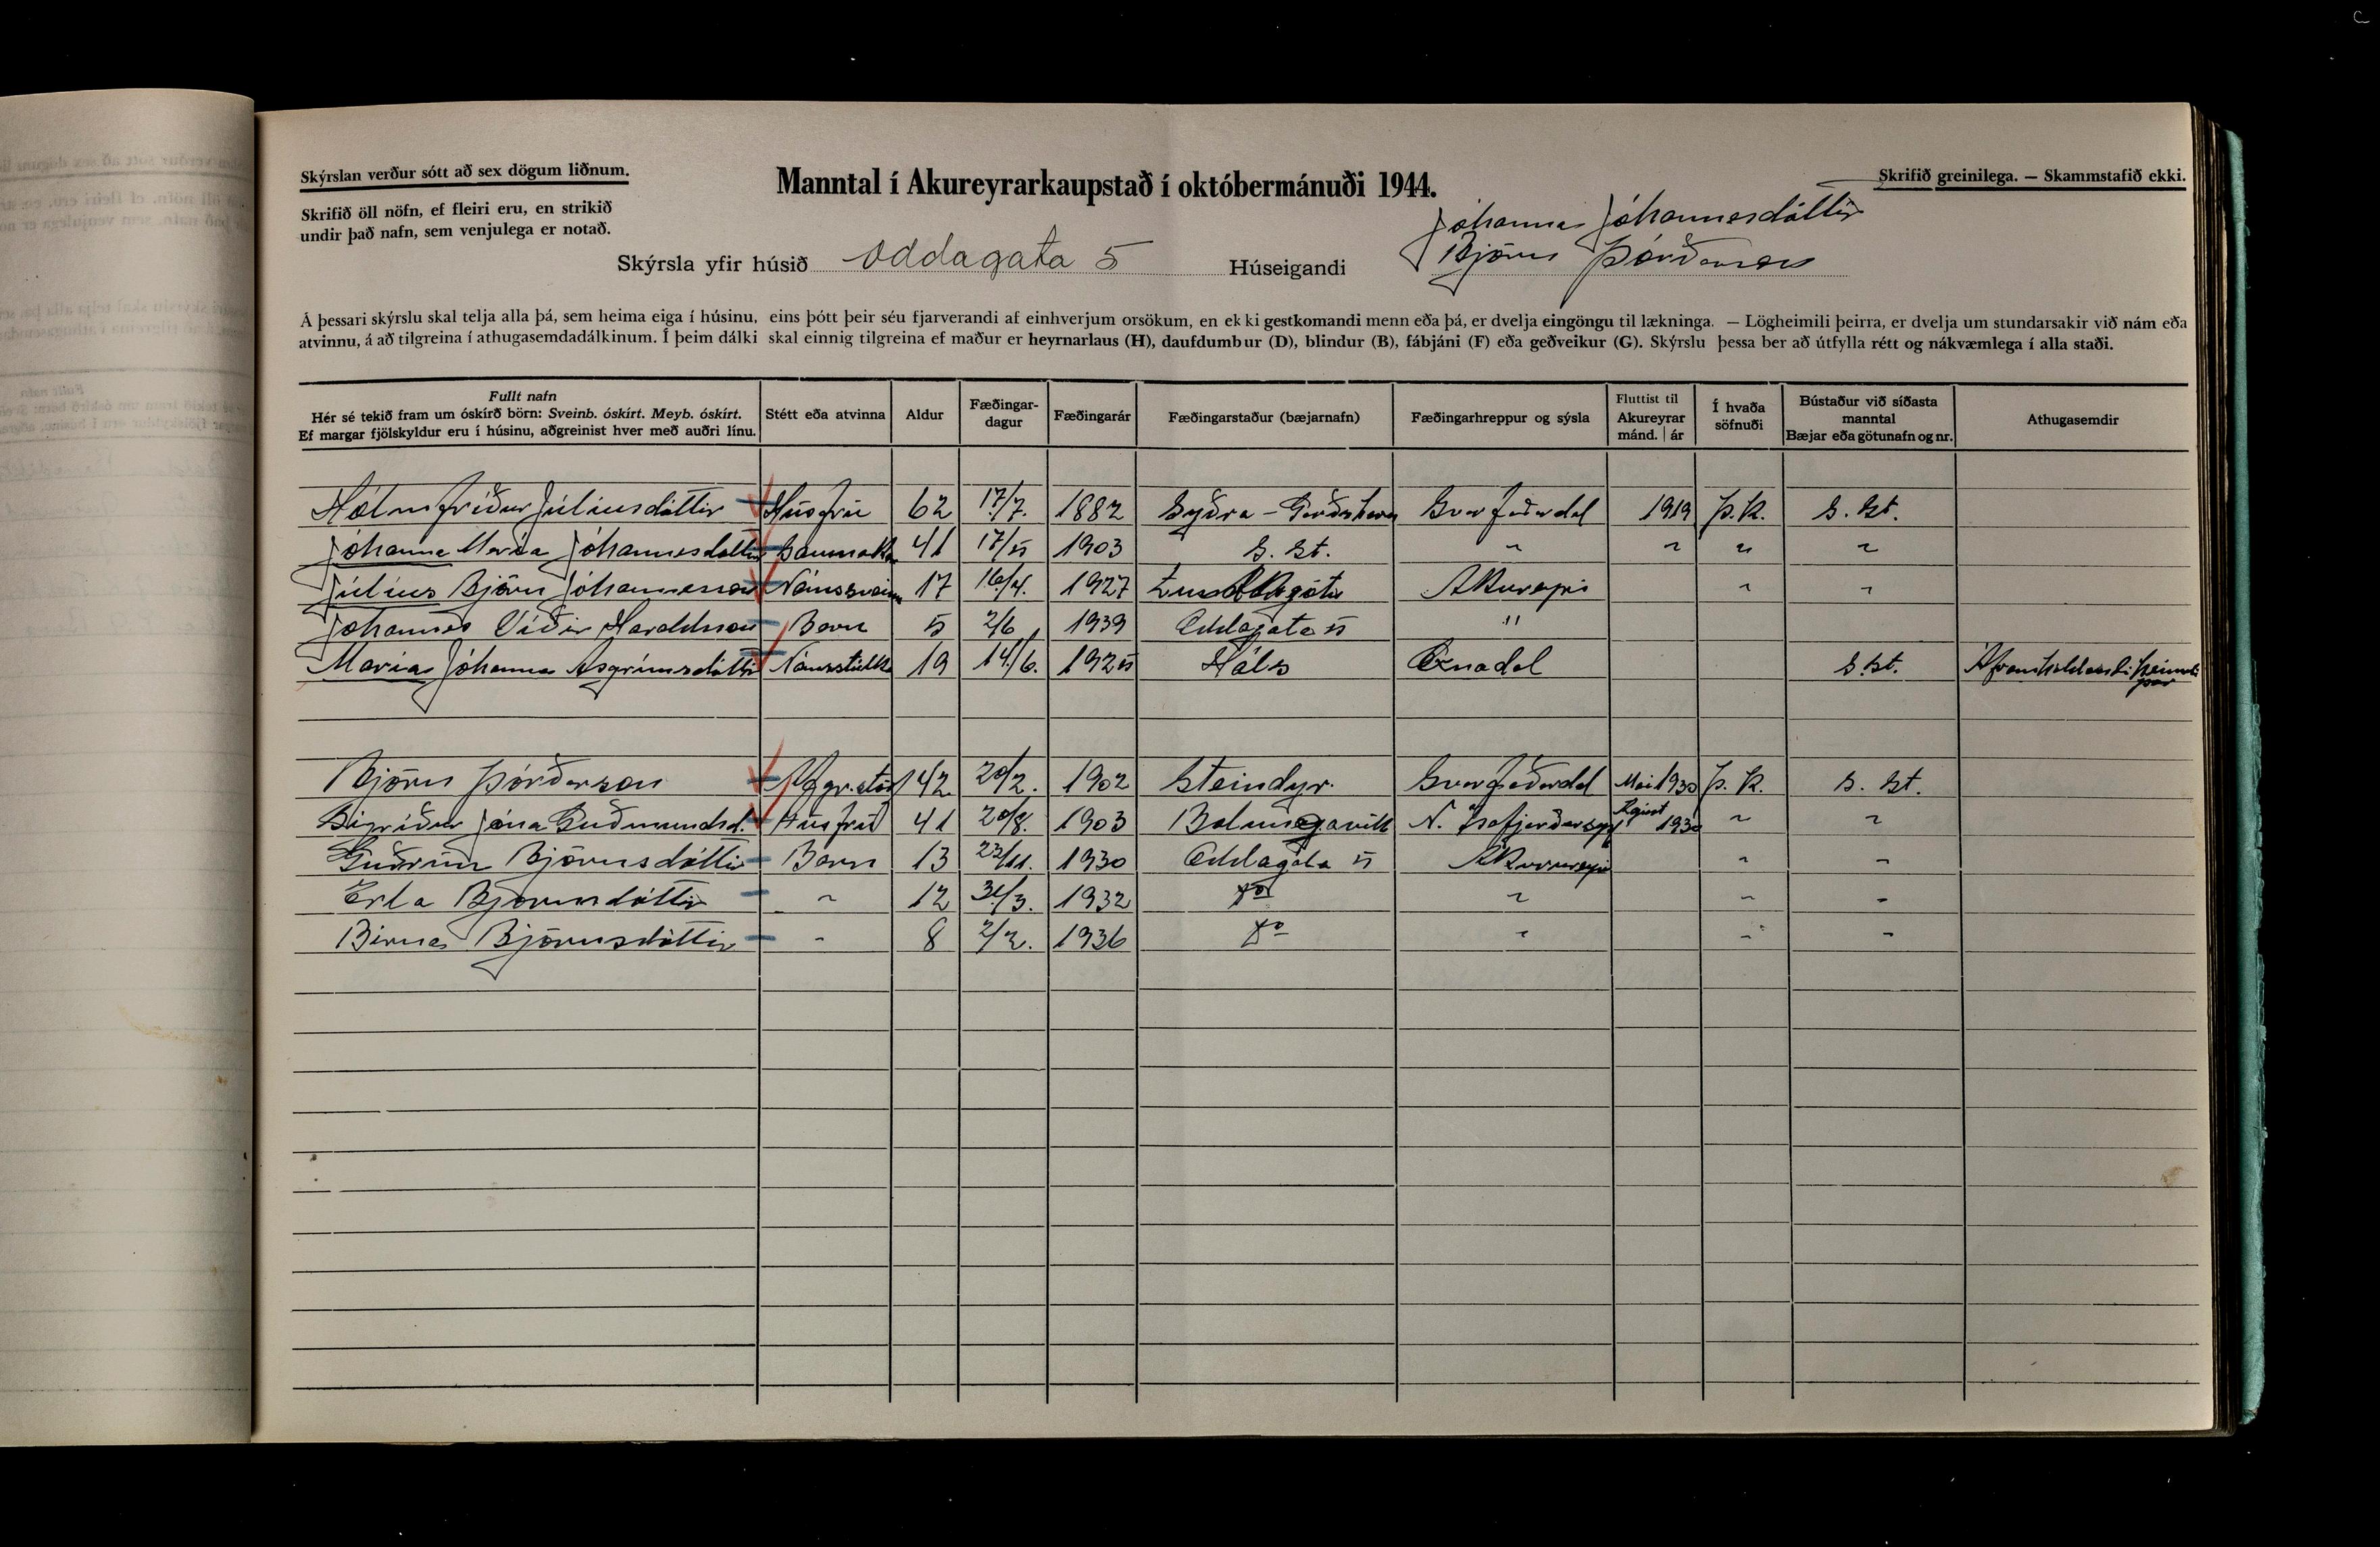 Skýrslan verður sótt að sex dögum liðnum.
Manntal í Akureyrarkaupstað í októbermánuði 1944.
Skrifið greinilega. — Skammstafið ekki.
Skrifið öll nöfn, ef fleiri eru, en strikið
undir það nafn, sem venjulega er notað.
Jóhanna Jóhannesdóttir
Skýrsla yfir húsið Oddagata 5 Húseigandi Björn Þórðarson
Á þessari skýrslu skal telja alla þá, sem heima eiga í húsinu, eins þótt þeir séu fjarverandi af einhverjum orsökum, en ekki gestkomandi menn eða þá, er dvelja eingöngu til lækninga. — Lögheimili þeirra, er dvelja um stundarsakir við nám eða
atvinnu, á að tilgreina í athugasemdadálkinum. Í þeim dálki skal einnig tilgreina ef maður er heyrnarlaus (H), daufdumbur (D), blindur (B), fábjáni (F) eða geðveikur (G). Skýrslu þessa ber að útfylla rétt og nákvæmlega í alla staði.
Fullt nafn
Hér sé tekið fram um óskírð börn: Sveinb. óskírt. Meyb. óskírt.
Ef margar fjölskyldur eru í húsinu, aðgreinist hver með auðri línu.
Stétt eða atvinna
Aldur
Fæðingar-
dagur
Fæðingarár
Fæðingarstaður (bæjarnafn)
Fæðingarhreppur og sýsla
Fluttist til
Akureyrar
mánd. | ár
Í hvaða
söfnuði
Bústaður við síðasta
manntal
Bæjar eða götunafn og nr.
Athugasemdir
Hólmfríður Júlíusdóttir Húsfrú 62 17/7. 1882 Syðra-Garðshorn Svarfaðardal 1919 Þ.K. S. St.
Jóhanna María Jóhannesdóttir Saumak. 41 17/5 1903 S. St. " " " "
Júlíus Björn Jóhannesson Námssveinn 17 16/4. 1927 Akureyri " "
Jóhannes Víðir Haraldsson Barn 5 2/6 1939 Oddagata 5 "
María Jóhanna Ásgrímsdóttir Námsstúlka 19 14/6. 1925 Háls Öxnadal S. St.
Björn Þórðarson Afgr.stj. 42 20/2. 1902 Steindyr. Svarfaðardal Mai 1930 Þ. K. S. St.
Sigríður Jóna Guðmundsd. Húsfrú 41 20/8. 1903 Bolungavík N. Ísafjarðarsýsl Ágúst 1930 " "
Guðrún Björnsdóttir Barn 13 23/11. 1930 Oddagata 5 Akureyri " "
Erla Björnsdóttir " 12 31/3. 1932 do " " "
Birna Björnsdóttir " 8 2/2. 1936 do " " "